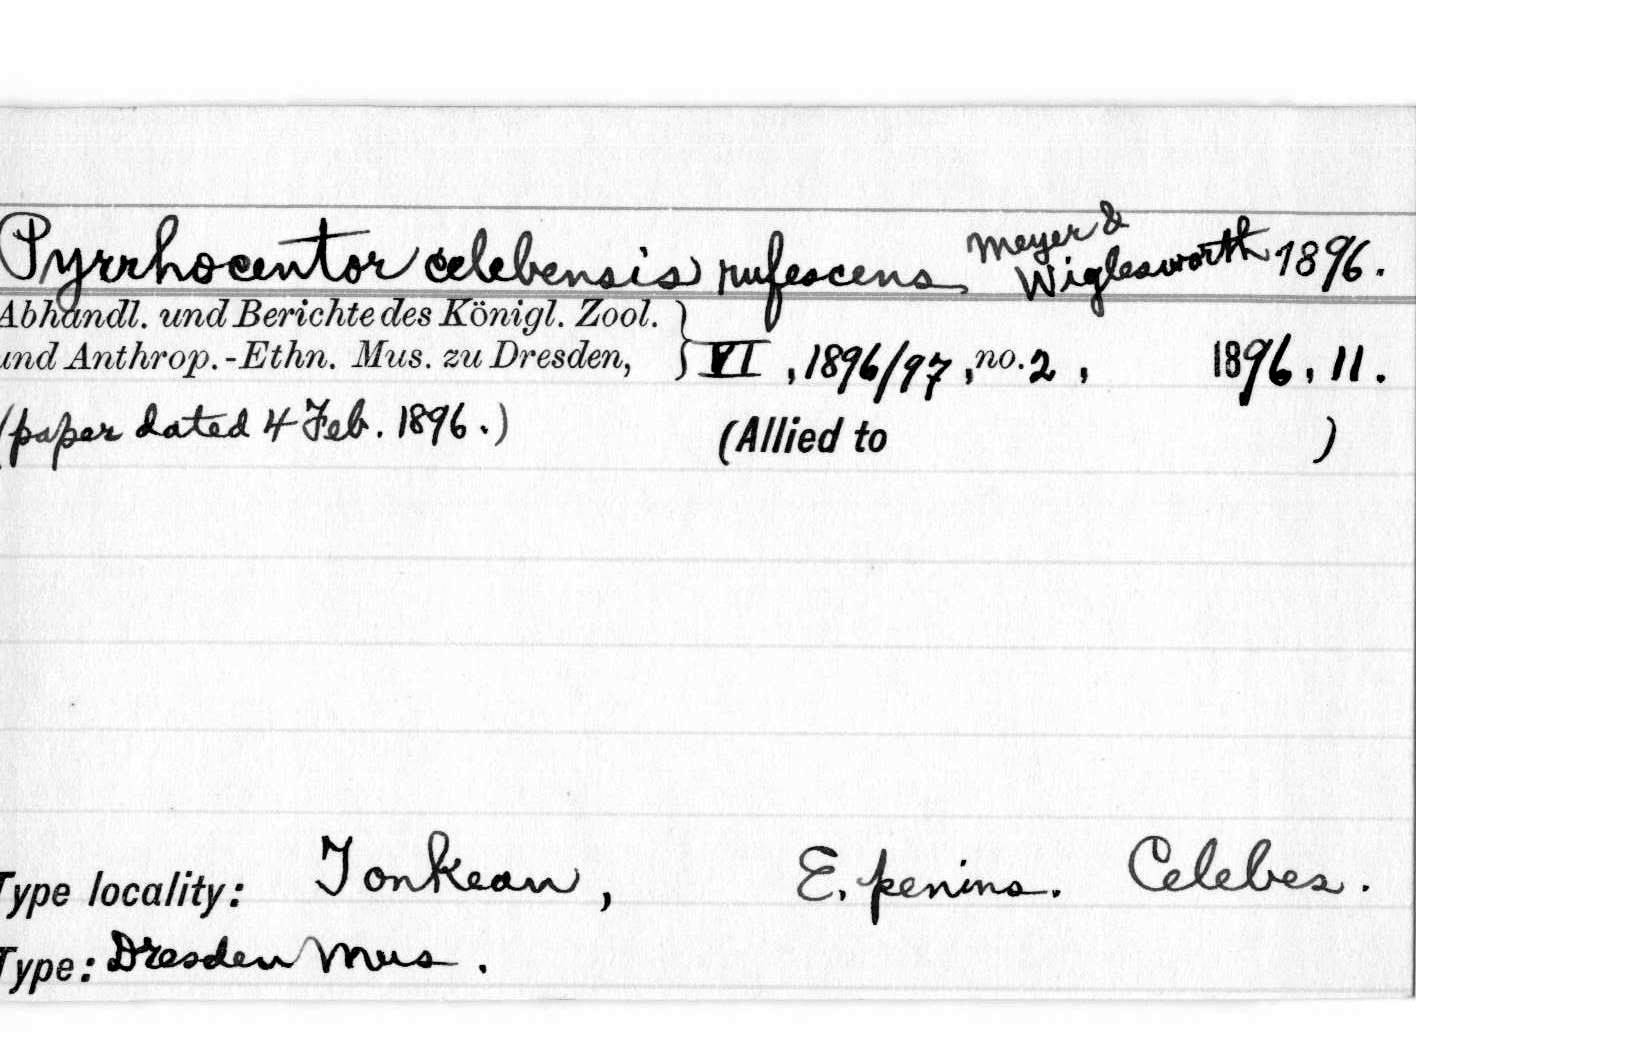 Pyrrhocentor celebensis rufescens Meyer & Wiglesworth 1896.
Abhandl. und Berichte des Königl. Zool.
und Anthrop.-Ethn. Mus. zu Dresden, } VI, 1896/97, no. 2, 1896, 11.
(paper dated 4 Feb. 1896.) (Allied to )
Type locality: Tonkean, E. penins. Celebes.
Type: Dresden Mus.